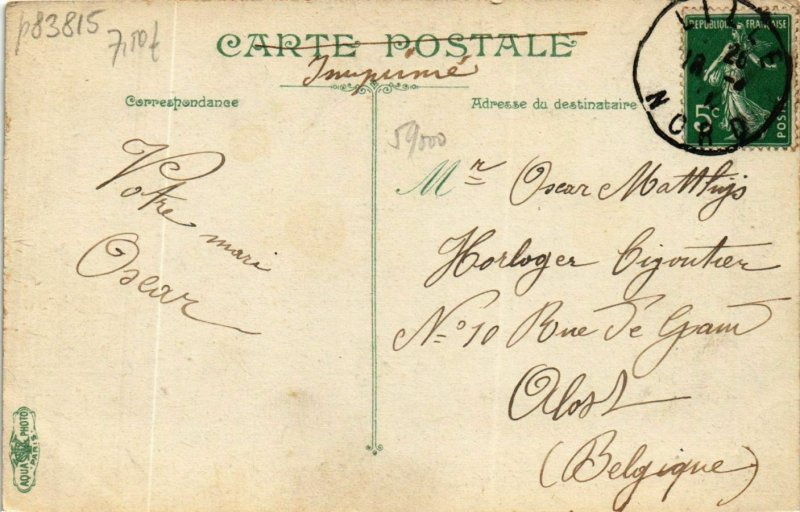 p83815
7,50f
CARTE POSTALE
Imprimé
Correspondance
Adresse du destinataire
59000
Votre mari
Oscar
Mr Oscar Matthijs
Horloger Bijoutier
N° 10 Rue de Gand
Alost
(Belgique)
REPUBLIQUE FRANÇAISE
5c
POSTES
LILLE
NORD
AQUA PHOTO
PARIS